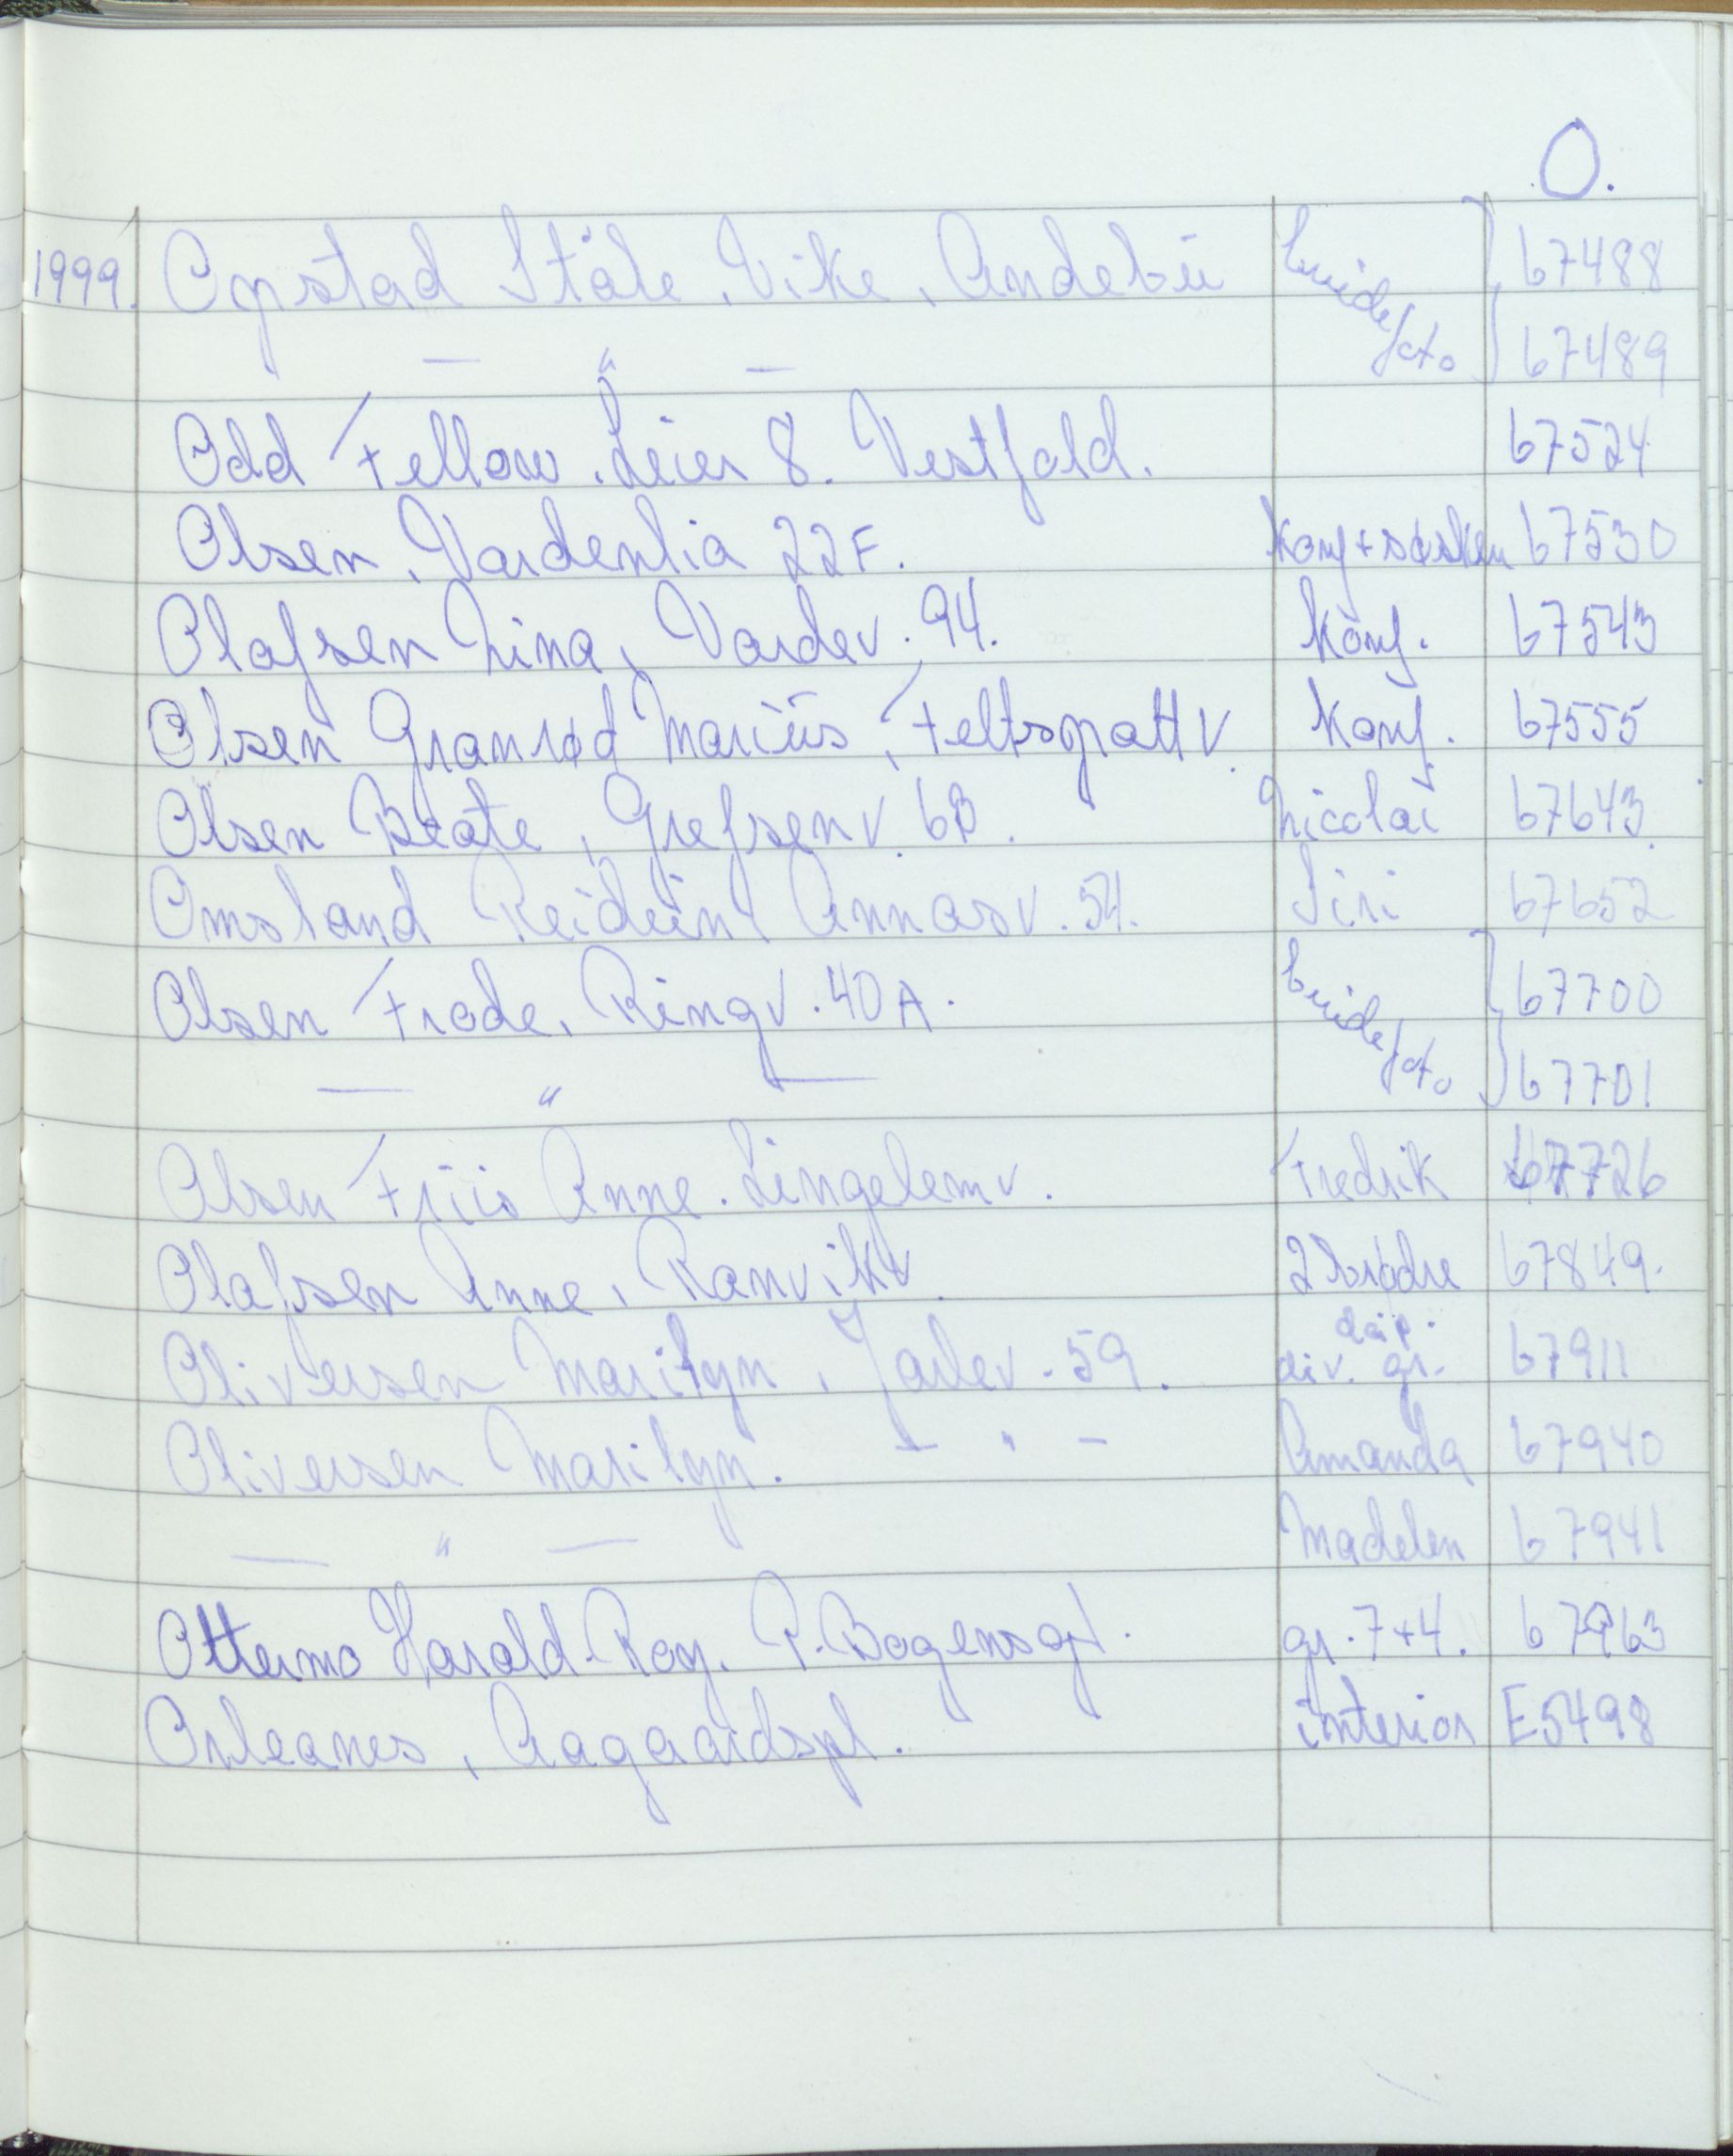 O.
1999. Opstad Ståle, Vike, Andebu brude/foto 67488
— " — 67489
Odd Fellow. Leir 8. Vestfold. 67524
Olsen, Vardenlia 22F. Konf + søsken 67530
Olafsen Nina, Vardev. 94. Konf. 67543
Olsen Gramrød Marius, Feltspattv. Konf. 67555
Olsen Beate, Grefsenv. 6B. Nicolai 67643
Omsland Reidun Annasv. 54. Siri 67652
Olsen Frode, Ringv. 40A. brude/foto 67700
— " — 67701
Olsen Friis Anne. Lingelemv. Fredrik 67726
Olafsen Anne, Ranvikv. 2 brødre 67849.
Oliversen Marilyn, Jarlev. 59. div. dåp. gr. 67911
Oliversen Marilyn. — " — Amanda 67940
— " — Madelen 67941
Ottermo Harald-Roy. P. Bogensgt. gr. 7+4. 67963
Orleanes, Aagaardspl. interiør E5498